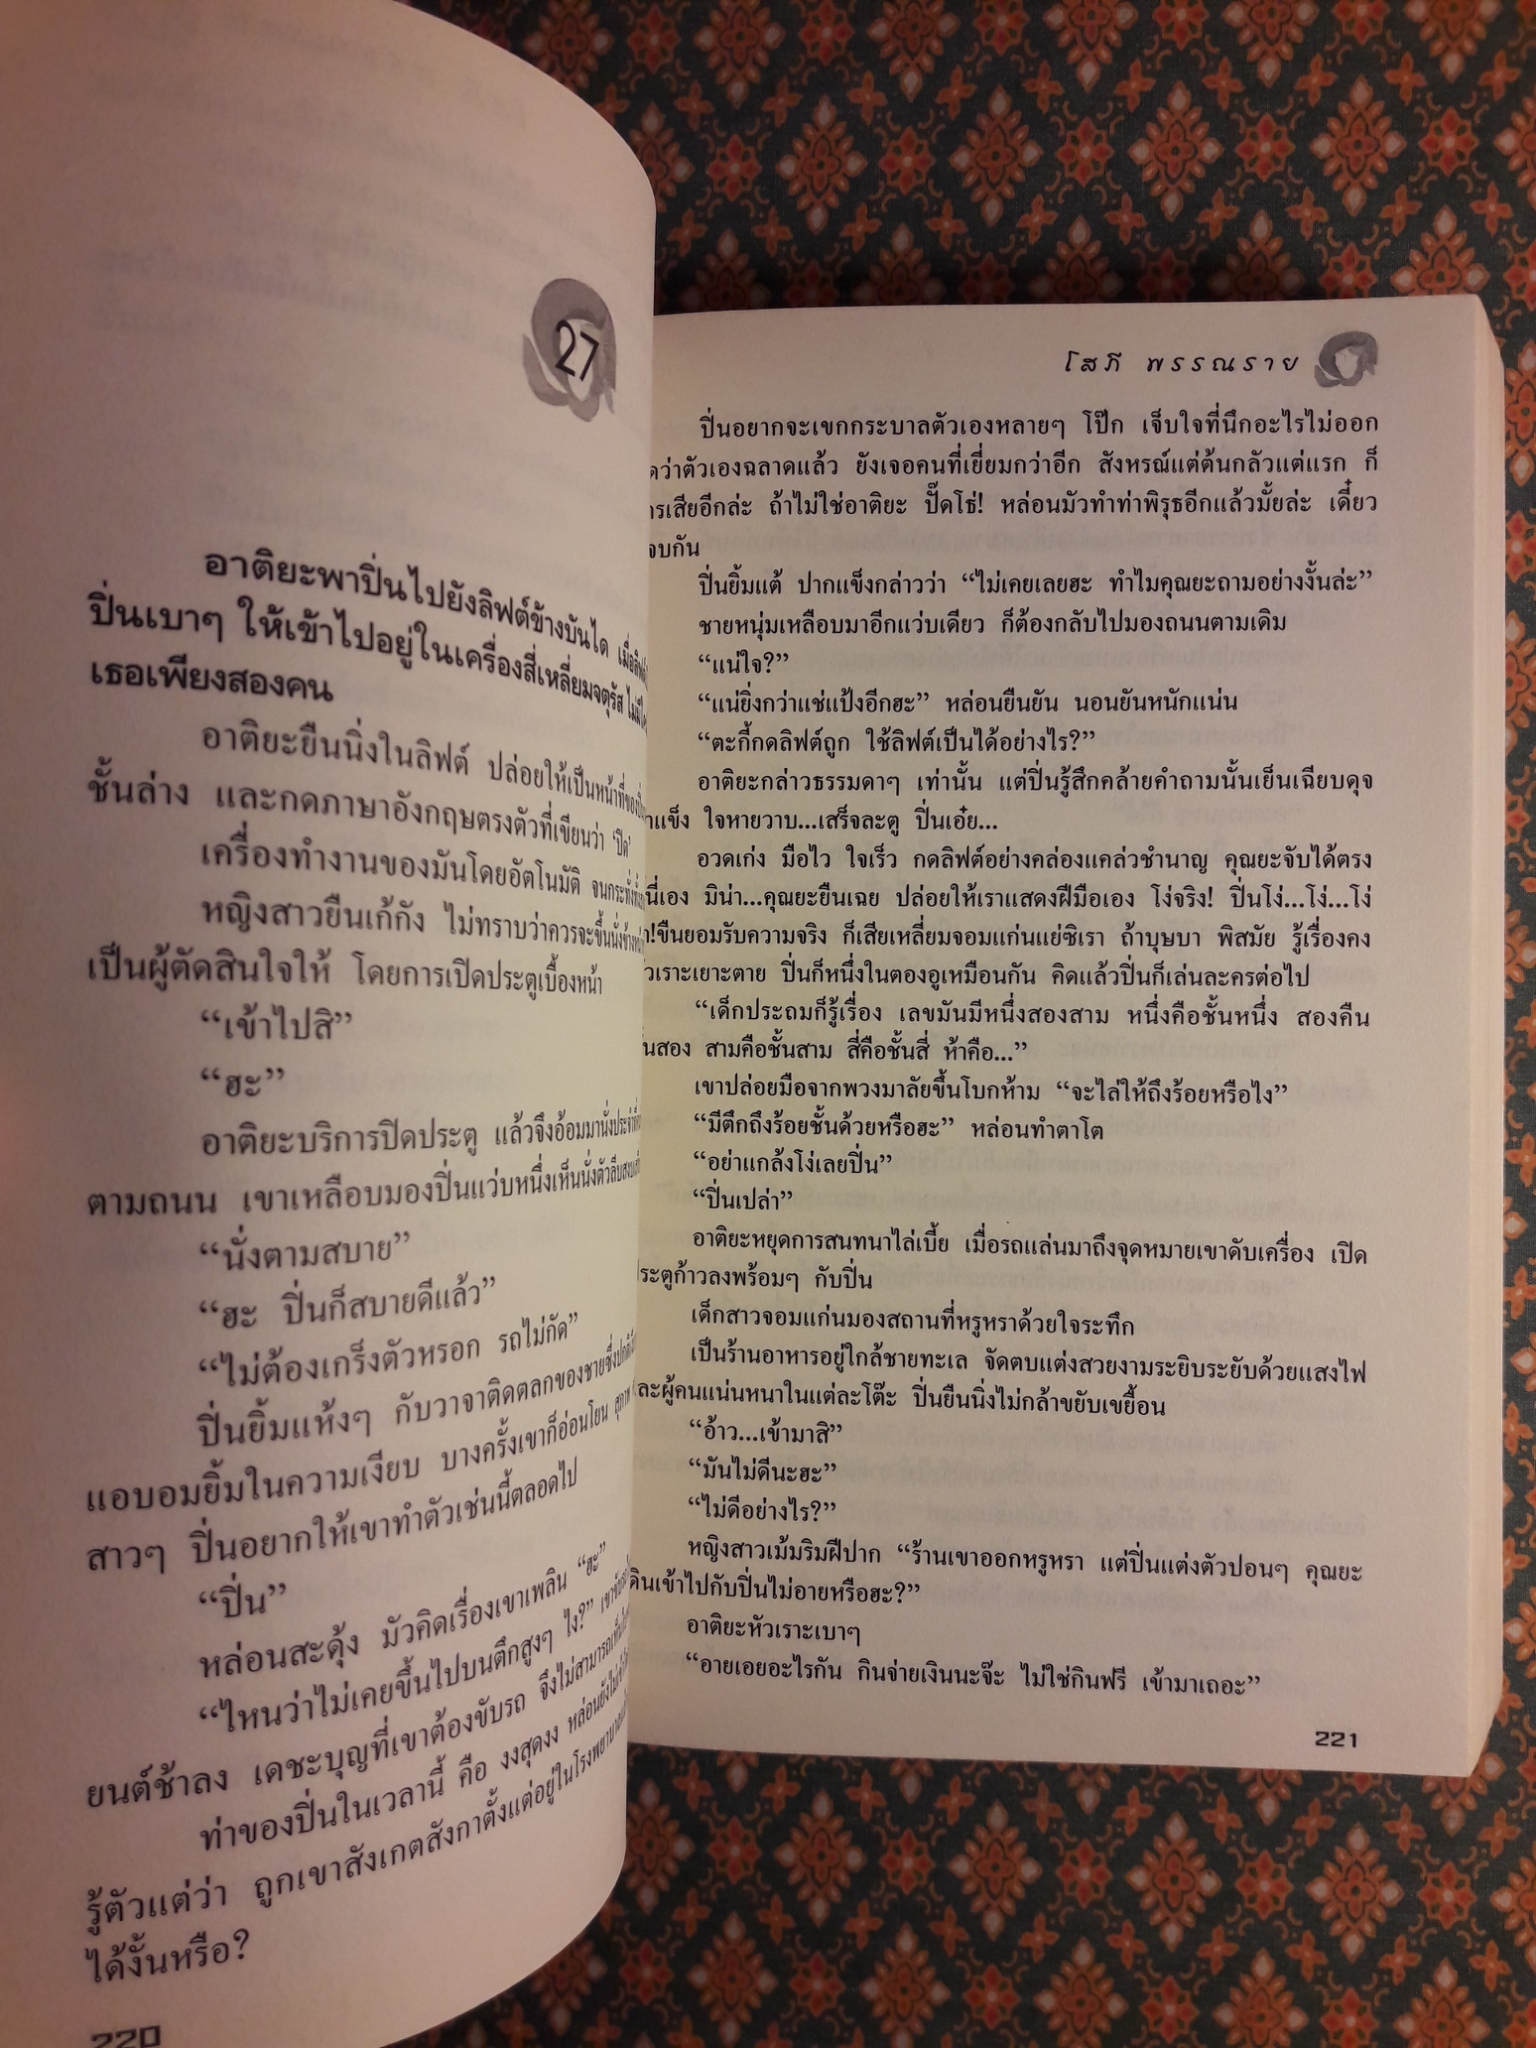 27
อาติยะพาปิ่นไปยังลิฟต์ข้างบันได
ปิ่นเบาๆ ให้เข้าไปอยู่ในเครื่องสี่เหลี่ยมจตุรัส
เธอเพียงสองคน
อาติยะยืนนิ่งในลิฟต์ ปล่อยให้เป็นหน้าที่ของ
ชั้นล่าง และกดภาษาอังกฤษตรงตัวที่เขียนว่า ‘ปิด’
เครื่องทำงานของมันโดยอัตโนมัติ
หญิงสาวยืนเก้กัง ไม่ทราบว่าควรจะขึ้นนั่งข้าง
เป็นผู้ตัดสินใจให้ โดยการเปิดประตูเบื้องหน้า
“เข้าไปสิ”
“ฮะ”
อาติยะบริการปิดประตู แล้วจึงอ้อมมานั่ง
ตามถนน เขาเหลือบมองปิ่นแว่บหนึ่งเห็นนั่งตัวลีบ
“นั่งตามสบาย”
“ฮะ ปิ่นก็สบายดีแล้ว”
“ไม่ต้องเกร็งตัวหรอก รถไม่กัด”
ปิ่นยิ้มแห้งๆ กับวาจาติดตลกของชาย
แอบอมยิ้มในความเงียบ บางครั้งเขาก็อ่อนโยน
สาวๆ ปิ่นอยากให้เขาทำตัวเช่นนี้ตลอดไป
“ปิ่น”
หล่อนสะดุ้ง มัวคิดเรื่องเขาเพลิน “ฮะ”
“ไหนว่าไม่เคยขึ้นไปบนตึกสูงๆ ไง?”
ยนต์ช้าลง เดชะบุญที่เขาต้องขับรถ จึงไม่สามารถ
ท่าของปิ่นในเวลานี้ คือ งงสุดงง
รู้ตัวแต่ว่า ถูกเขาสังเกตสังกาตั้งแต่อยู่ในโรงพยาบาล
ได้งั้นหรือ?
220
โสภี พรรณราย
ปิ่นอยากจะเขกกระบาลตัวเองหลายๆ โป๊ก เจ็บใจที่นึกอะไรไม่ออก
ว่าตัวเองฉลาดแล้ว ยังเจอคนที่เยี่ยมกว่าอีก สังหรณ์แต่ต้นกลัวแต่แรก ก็
เสียอีกล่ะ ถ้าไม่ใช่อาติยะ ปั๊ดโธ่! หล่อนมัวทำท่าพิรุธอีกแล้วมั้ยล่ะ เดี๋ยว
จบกัน
ปิ่นยิ้มแต้ ปากแข็งกล่าวว่า “ไม่เคยเลยฮะ ทำไมคุณยะถามอย่างงั้นล่ะ”
ชายหนุ่มเหลือบมาอีกแว่บเดียว ก็ต้องกลับไปมองถนนตามเดิม
“แน่ใจ?”
“แน่ยิ่งกว่าแช่แป้งอีกฮะ” หล่อนยืนยัน นอนยันหนักแน่น
“ตะกี้กดลิฟต์ถูก ใช้ลิฟต์เป็นได้อย่างไร?”
อาติยะกล่าวธรรมดาๆ เท่านั้น แต่ปิ่นรู้สึกคล้ายคำถามนั้นเย็นเฉียบดุจ
แข็ง ใจหายวาบ...เสร็จละตู ปิ่นเอ๋ย...
อวดเก่ง มือไว ใจเร็ว กดลิฟต์อย่างคล่องแคล่วชำนาญ คุณยะจับได้ตรง
นี่เอง มิน่า...คุณยะยืนเฉย ปล่อยให้เราแสดงฝีมือเอง โง่จริง! ปิ่นโง่...โง่...โง่
ขืนยอมรับความจริง ก็เสียเหลี่ยมจอมแก่นแย่ซิเรา ถ้าบุษบา พิสมัย รู้เรื่องคง
หัวเราะเยาะตาย ปิ่นก็หนึ่งในตองอูเหมือนกัน คิดแล้วปิ่นก็เล่นละครต่อไป
“เด็กประถมก็รู้เรื่อง เลขมันมีหนึ่งสองสาม หนึ่งคือชั้นหนึ่ง สองคืน
ชั้นสอง สามคือชั้นสาม สี่คือชั้นสี่ ห้าคือ...”
เขาปล่อยมือจากพวงมาลัยขึ้นโบกห้าม “จะไล่ให้ถึงร้อยหรือไง”
“มีตึกถึงร้อยชั้นด้วยหรือฮะ” หล่อนทำตาโต
“อย่าแกล้งโง่เลยปิ่น”
“ปิ่นเปล่า”
อาติยะหยุดการสนทนาไล่เบี้ย เมื่อรถแล่นมาถึงจุดหมายเขาดับเครื่อง เปิด
ประตูก้าวลงพร้อมๆ กับปิ่น
เด็กสาวจอมแก่นมองสถานที่หรูหราด้วยใจระทึก
เป็นร้านอาหารอยู่ใกล้ชายทะเล จัดตบแต่งสวยงามระยิบระยับด้วยแสงไฟ
และผู้คนแน่นหนาในแต่ละโต๊ะ ปิ่นยืนนิ่งไม่กล้าขยับเขยื้อน
“อ้าว...เข้ามาสิ”
“มันไม่ดีนะฮะ”
“ไม่ดีอย่างไร?”
หญิงสาวเม้มริมฝีปาก “ร้านเขาออกหรูหรา แต่ปิ่นแต่งตัวปอนๆ คุณยะ
เดินเข้าไปกับปิ่นไม่อายหรือฮะ?”
อาติยะหัวเราะเบาๆ
“อายเอยอะไรกัน กินจ่ายเงินนะจ๊ะ ไม่ใช่กินฟรี เข้ามาเถอะ”
221